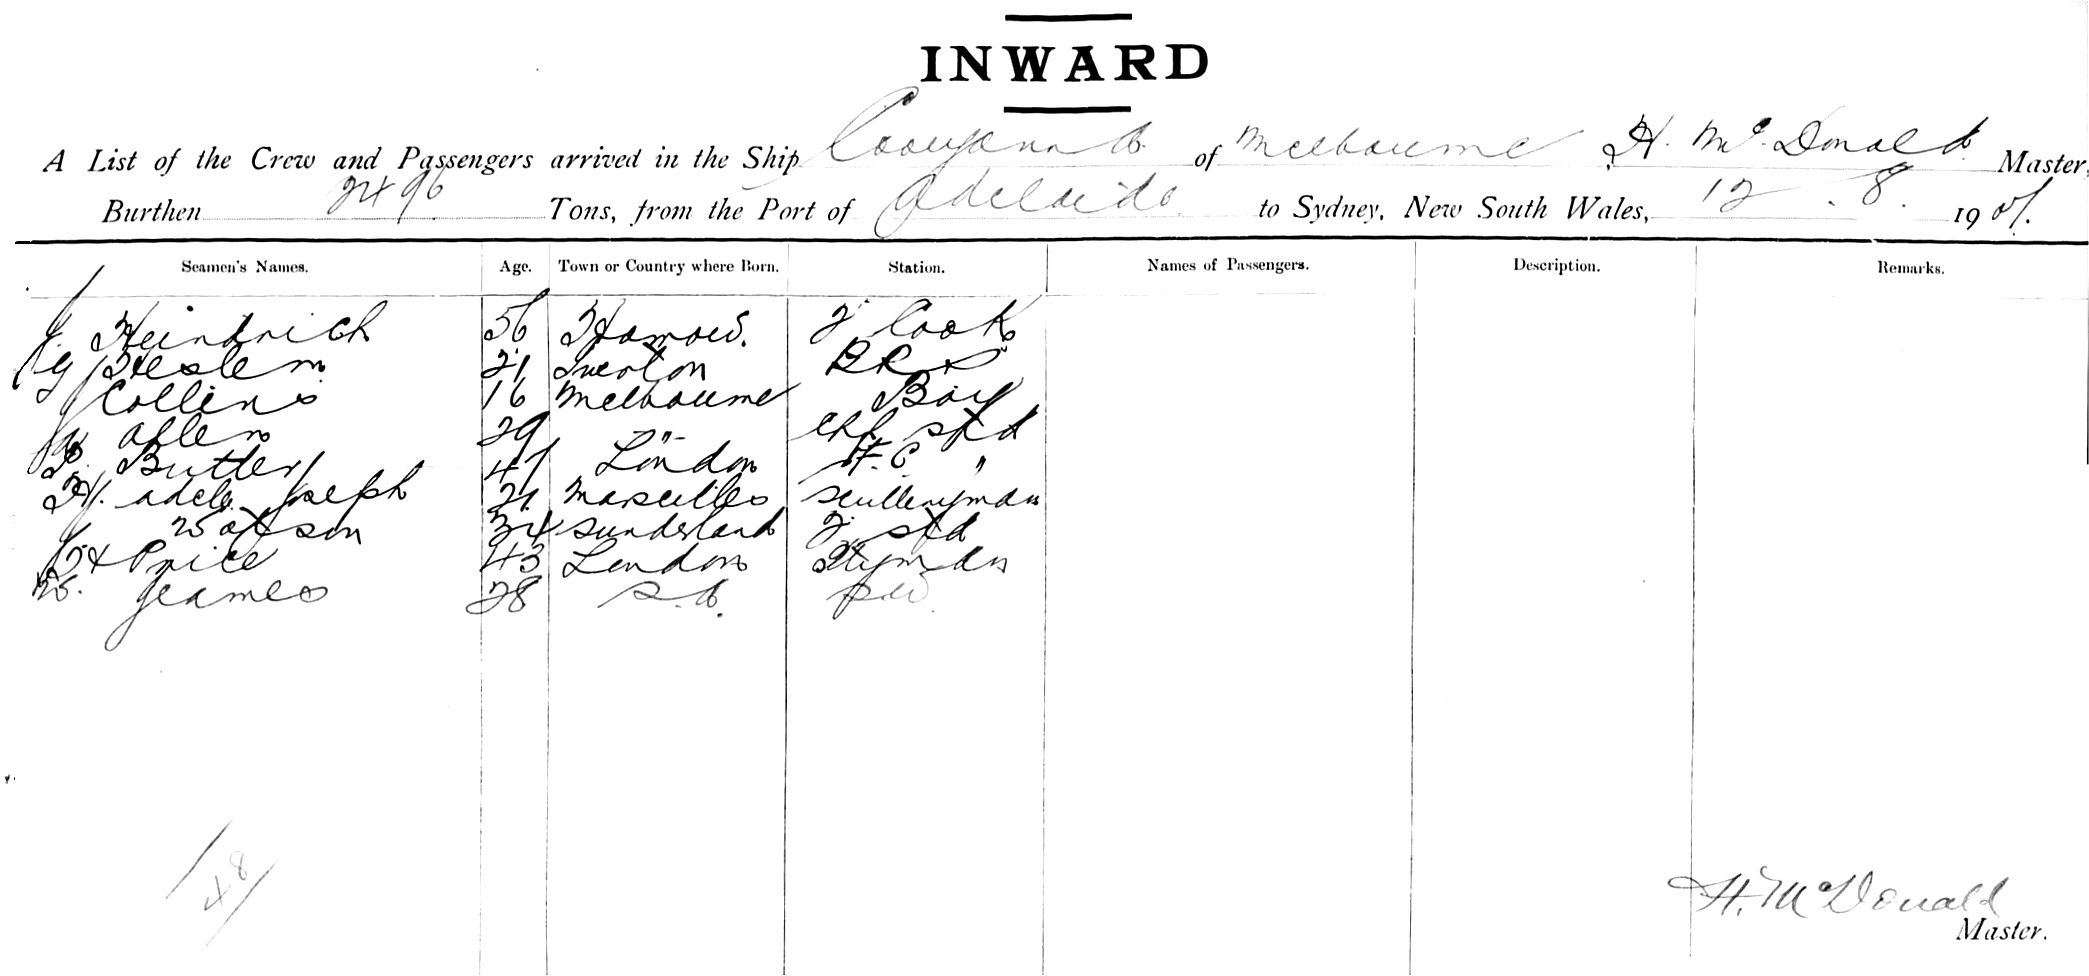 INWARD
A List of the Crew and Passengers arrived in the Ship Cooyanna of Melbourne H. McDonald Master,
Burthen 2496 Tons, from the Port of Adelaide to Sydney, New South Wales, 12. 8. 1907.
Seamen's Names. Age. Town or Country where Born. Station. Names of Passengers. Description. Remarks.
J. Heindrich 56 2' Cook
G 21 Iverton B R S
J Collins 16 Melbourne Boy
W Allen 29 -"- Chf Std
P. Butler 47 London F.C. "
H. Adele Joseph 21 Marseilles Sculleryman
J Watson 34 Sunderland 2' Std
H Price 43 London Ptyman
W. Jeames 28 S.A.
48
H. McDonald
Master.